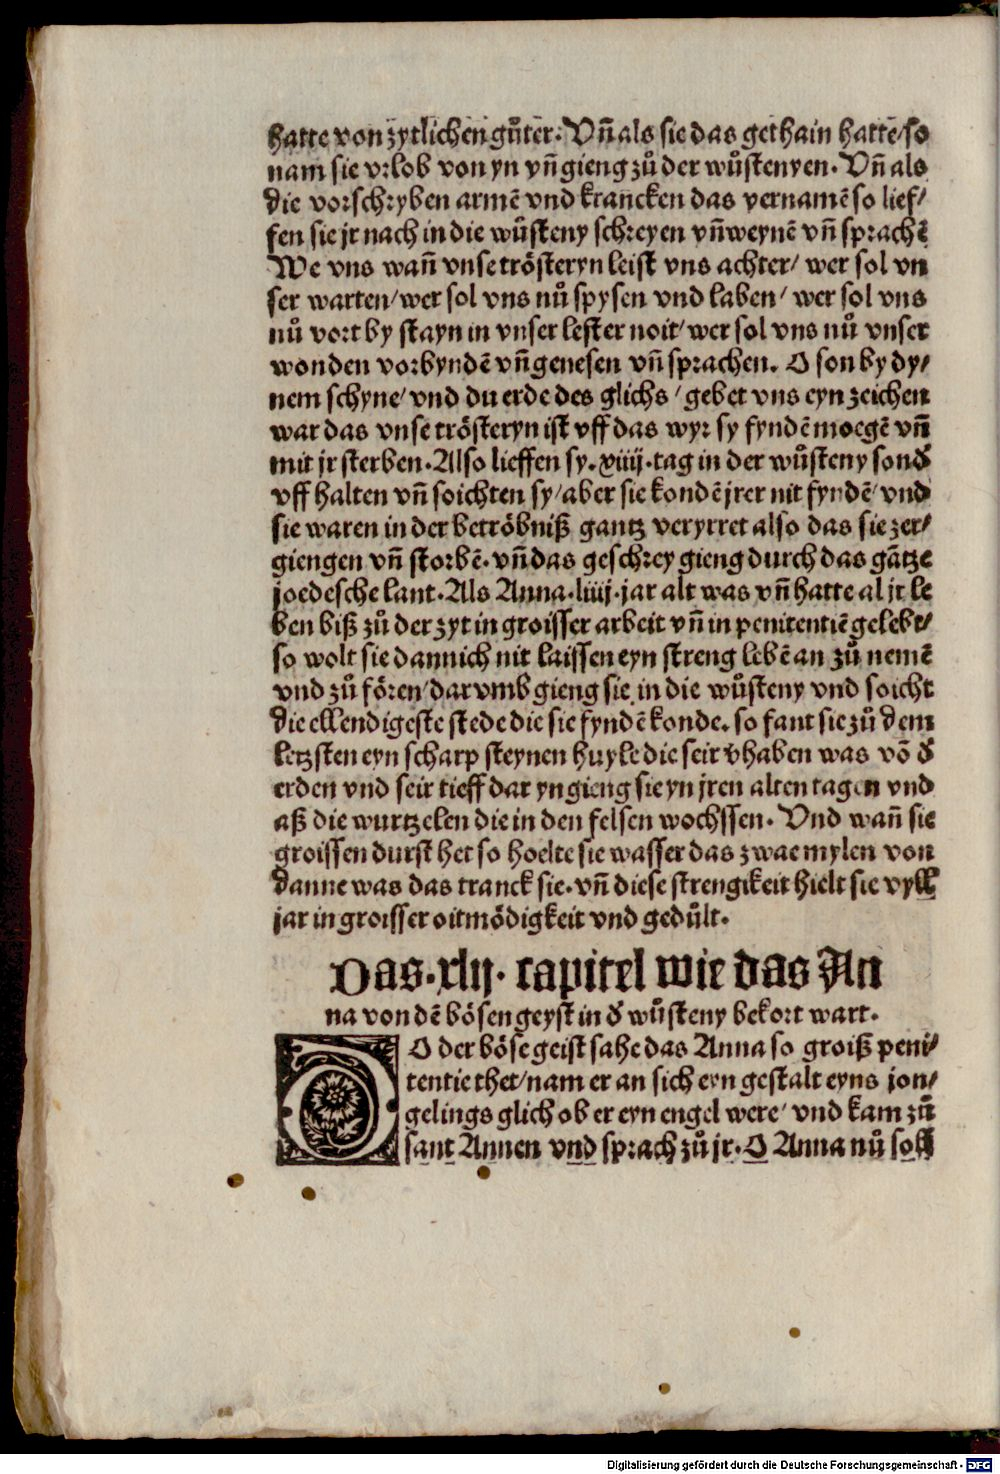 hatte von zytlichen gůter. Vñ als sie das gethain hatte/so
nam sie vrlob von yn vñ gieng zů der wůstenyen. Vñ als
die vorschryben armē vnd krancken das vernamē so lief/
fen sie jr nach in die wůsteny schreyen vñ weynē vñ sprachē
We vns wañ vnse trösteryn leist vns achter/ wer sol vn
ser warten/wer sol vns nů spysen vnd laben/ wer sol vns
nů vort by stayn in vnser lester noit/wer sol vns nů vnser
wonden vorbyndē vñ genesen vñ sprachen. O son by dy/
nem schyne/ vnd du erde des glichs/ gebet vns eyn zeichen
war das vnse trösteryn ist vff das wyr sy fyndē moegē vñ
mit jr sterben. Also lieffen sy. xiiij. tag in der wůsteny sonď
vff halten vñ soichten sy/aber sie kondē jrer nit fyndē/vnd
sie waren in der betröbniß gantz veryrret also das sie zer/
giengen vñ storbē. vñ das geschrey gieng durch das gātze
joedesche lant. Als Anna. liiij. jar alt was vñ hatte al jr le
ben biß zů der zyt in groisser arbeit vñ in penitentiē gelebt/
so wolt sie dannich nit laissen eyn streng lebē an zů nemē
vnd zů fören/darvmb gieng sie in die wůsteny vnd soicht
die ellendigeste stede die sie fyndē konde. so fant sie zů dem
letzsten eyn scharp steynen huyle die seir vhaben was vō ď
erden vnd seir tieff dar yn gieng sie yn jren alten tagen vnd
aß die wurtzelen die in den felsen wochssen. Vnd wañ sie
groissen durst het so hoelte sie wasser das zwae mylen von
danne was das tranck sie. vñ diese strengikeit hielt sie vyll
jar in groisser oitmödigkeit vnd gedůlt.
Das. xlij. capitel wie das An
na von dē bösen geyst in ď wůsteny bekort wart.
DO der böse geist sahe das Anna so groiß peni/
tentie thet/nam er an sich eyn gestalt eyns jon/
gelings glich ob er eyn engel were/ vnd kam zů
sant Annen vnd sprach zů jr. O Anna nů soll
Digitalisierung gefördert durch die Deutsche Forschungsgemeinschaft - DFG